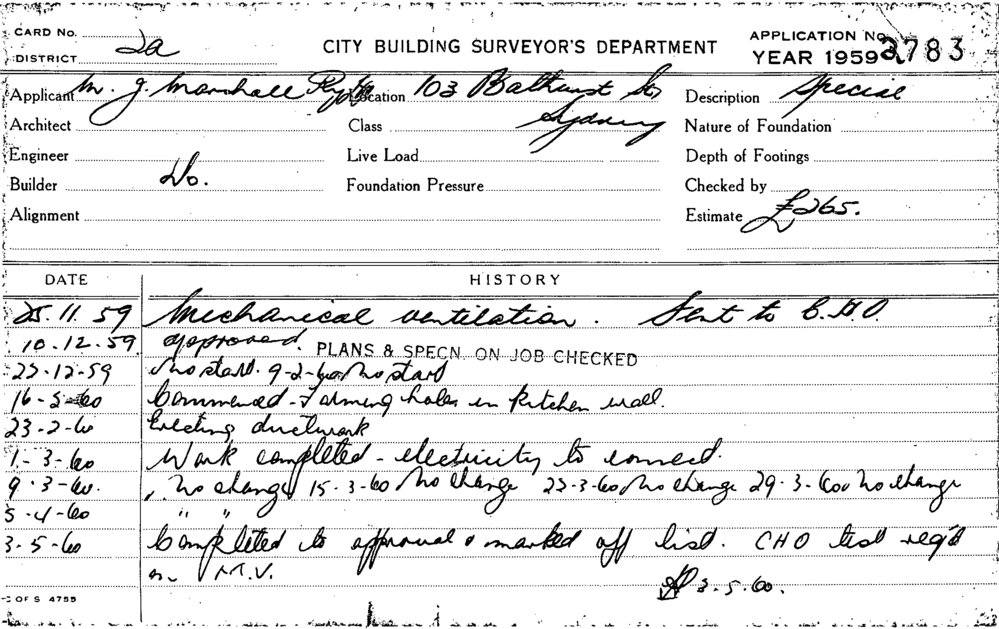 CARD No.
DISTRICT 2a
CITY BUILDING SURVEYOR'S DEPARTMENT
APPLICATION No. 2783
YEAR 1959
Applicant M. J. Marshall Pty Location 103 Bathurst St, Description Special
Architect Class Sydney Nature of Foundation
Engineer Live Load Depth of Footings
Builder Do. Foundation Pressure Checked by
Alignment Estimate £265.
DATE HISTORY
25.11.59 Mechanical ventilation. Sent to C.H.O.
10.12.59 approved. PLANS & SPECN. ON JOB CHECKED
22-12-59 No start. 9-2-60 No start
16-2-60 Commenced - Forming holes in kitchen wall.
23-2-60 Erecting ductwork
1-3-60 Work completed - electricity to connect.
9-3-60. No change 15-3-60 No change 22-3-60 No change 29-3-60 No change
5-4-60 " "
3-5-60 Completed to approval & marked off list. CHO test req'd
M.V.
3.5.60.
C OF S 4755